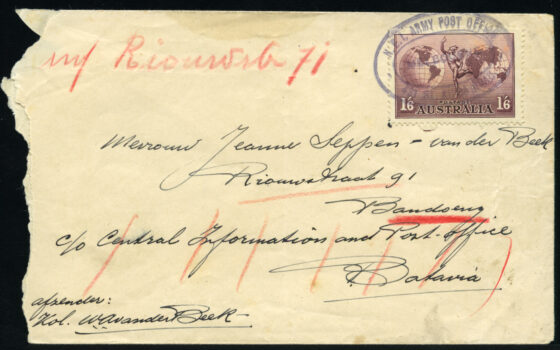 Riouwstr 71
N.E.I. ARMY POST OFFICE
POSTAGE
1/6 AUSTRALIA 1/6
Mevrouw Jeanne Seppen - van der Beek
Riouwstraat 91
Bandoeng
c/o Central Information and Post-Office
Batavia
afzender:
Kol. W.A. van der Beek